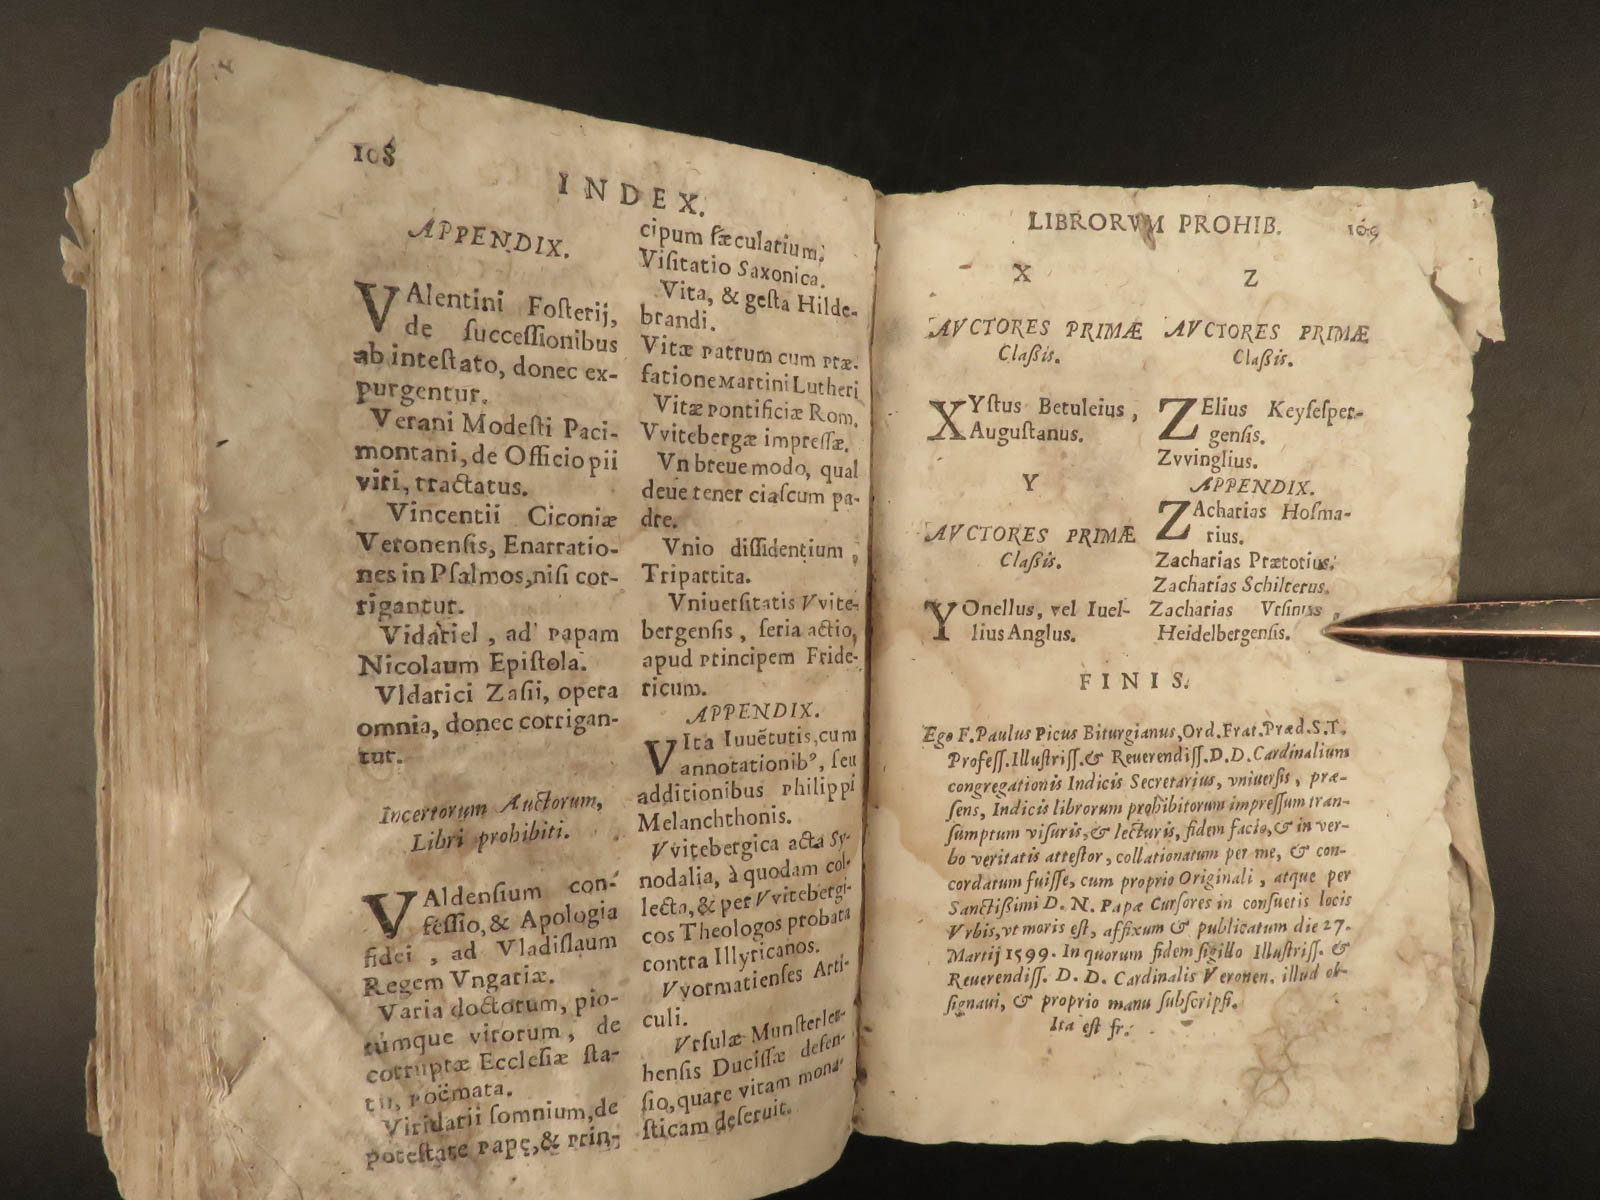 108
INDEX.
APPENDIX.
VAlentini Fosterij,
de ſucceſſionibus
ab inteſtato, donec ex-
purgentur.
Verani Modeſti Paci-
montani, de Officio pii
viri, tractatus.
Vincentii Ciconiæ
Veronenſis, Enarratio-
nes in Pſalmos, niſi cor-
rigantur.
Vidariel, ad Papam
Nicolaum Epiſtola.
Vldarici Zaſii, opera
omnia, donec corrigan-
tur.
Incertorum Auctorum,
Libri prohibiti.
VAldenſium con-
feſſio, & Apologia
fidei, ad Vladiſlaum
Regem Vngariæ.
Varia doctorum, pio-
rumque virorum, de
corruptæ Eccleſiæ ſta-
tu, poëmata.
Viridarii ſomnium, de
poteſtate Papę, & Prin-
cipum ſæculatium.
Viſitatio Saxonica.
Vita, & geſta Hilde-
brandi.
Vitæ patrum cum præ-
fatione Martini Lutheri
Vitæ Pontificiæ Rom.
Vvitebergæ impreſſæ.
Vn breue modo, qual
deue tener ciaſcum pa-
dre.
Vnio diſſidentium,
Tripartita.
Vniuerſitatis Vvite-
bergenſis, ſeria actio,
apud Principem Fride-
ricum.
APPENDIX.
VIta Iuuẽtutis, cum
annotationibꝰ, ſeu
additionibus Philippi
Melanchthonis.
Vvitebergica acta Sy-
nodalia, à quodam col-
lecta, & per Vvitebergi-
cos Theologos probata
contra Illyricanos.
Vvormatienſes Arti-
culi.
Vrſulæ Munſterler-
henſis Duciſſæ defen-
ſio, quare vitam mona-
ſticam deſeruit.
LIBRORVM PROHIB. 109
X
AVCTORES PRIMÆ
Claßis.
XYſtus Betuleius,
Auguſtanus.
Y
AVCTORES PRIMÆ
Claßis.
YOnellus, vel Iuel-
lius Anglus.
Z
AVCTORES PRIMÆ
Claßis.
ZElius Keyſeſper-
genſis.
Zvvinglius.
APPENDIX.
ZAcharias Hoſma-
rius.
Zacharias Prætotius.
Zacharias Schilterus.
Zacharias Vrſinus,
Heidelbergenſis.
FINIS.
Ego F. Paulus Picus Biturgianus, Ord. Frat. Præd. S. T.
Profeſſ. Illuſtriſſ. & Reuerendiſſ. D. D. Cardinalium
congregationis Indicis Secretarius, vniuerſis, præ-
ſens, Indicis librorum prohibitorum impreſſum tran-
ſumptum viſuris, & lecturis, fidem facio, & in ver-
bo veritatis atteſtor, collationatum per me, & con-
cordatum fuiſſe, cum proprio Originali, atque per
Sanctißimi D. N. Papæ Curſores in conſuetis locis
Vrbis, vt moris eſt, affixum & publicatum die 27.
Martij 1599. In quorum fidem ſigillo Illuſtriſſ. &
Reuerendiſſ. D. D. Cardinalis Veronen. illud ob-
ſignaui, & proprio manu ſubſcripſi.
Ita eſt fr.